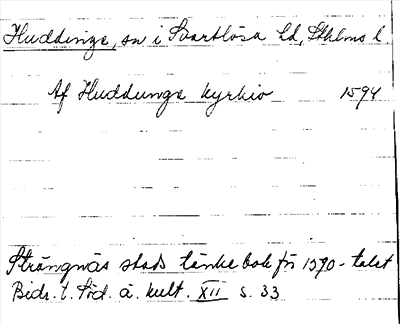 Huddinge, sn i Svartlösa hd, Sthlms l.
Af Huddunge kyrkio 1594
Strängnäs stads tänkebok för 1590-talet
Bidr. t. Söd. ä. kult. XII s. 33